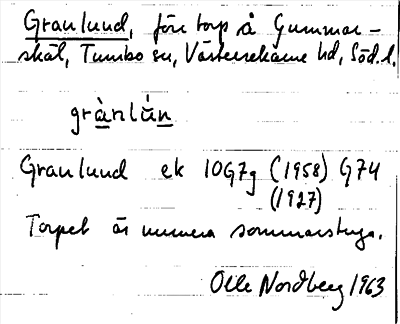 Granlund, förr torp å Gummar-
skäl, Tumbo sn, Västerrekarne hd, Söd. l.
grànlún
Granlund ek 10G7g (1958) G74
(1927)
Torpet är numera sommarstuga.
Olle Nordberg 1963